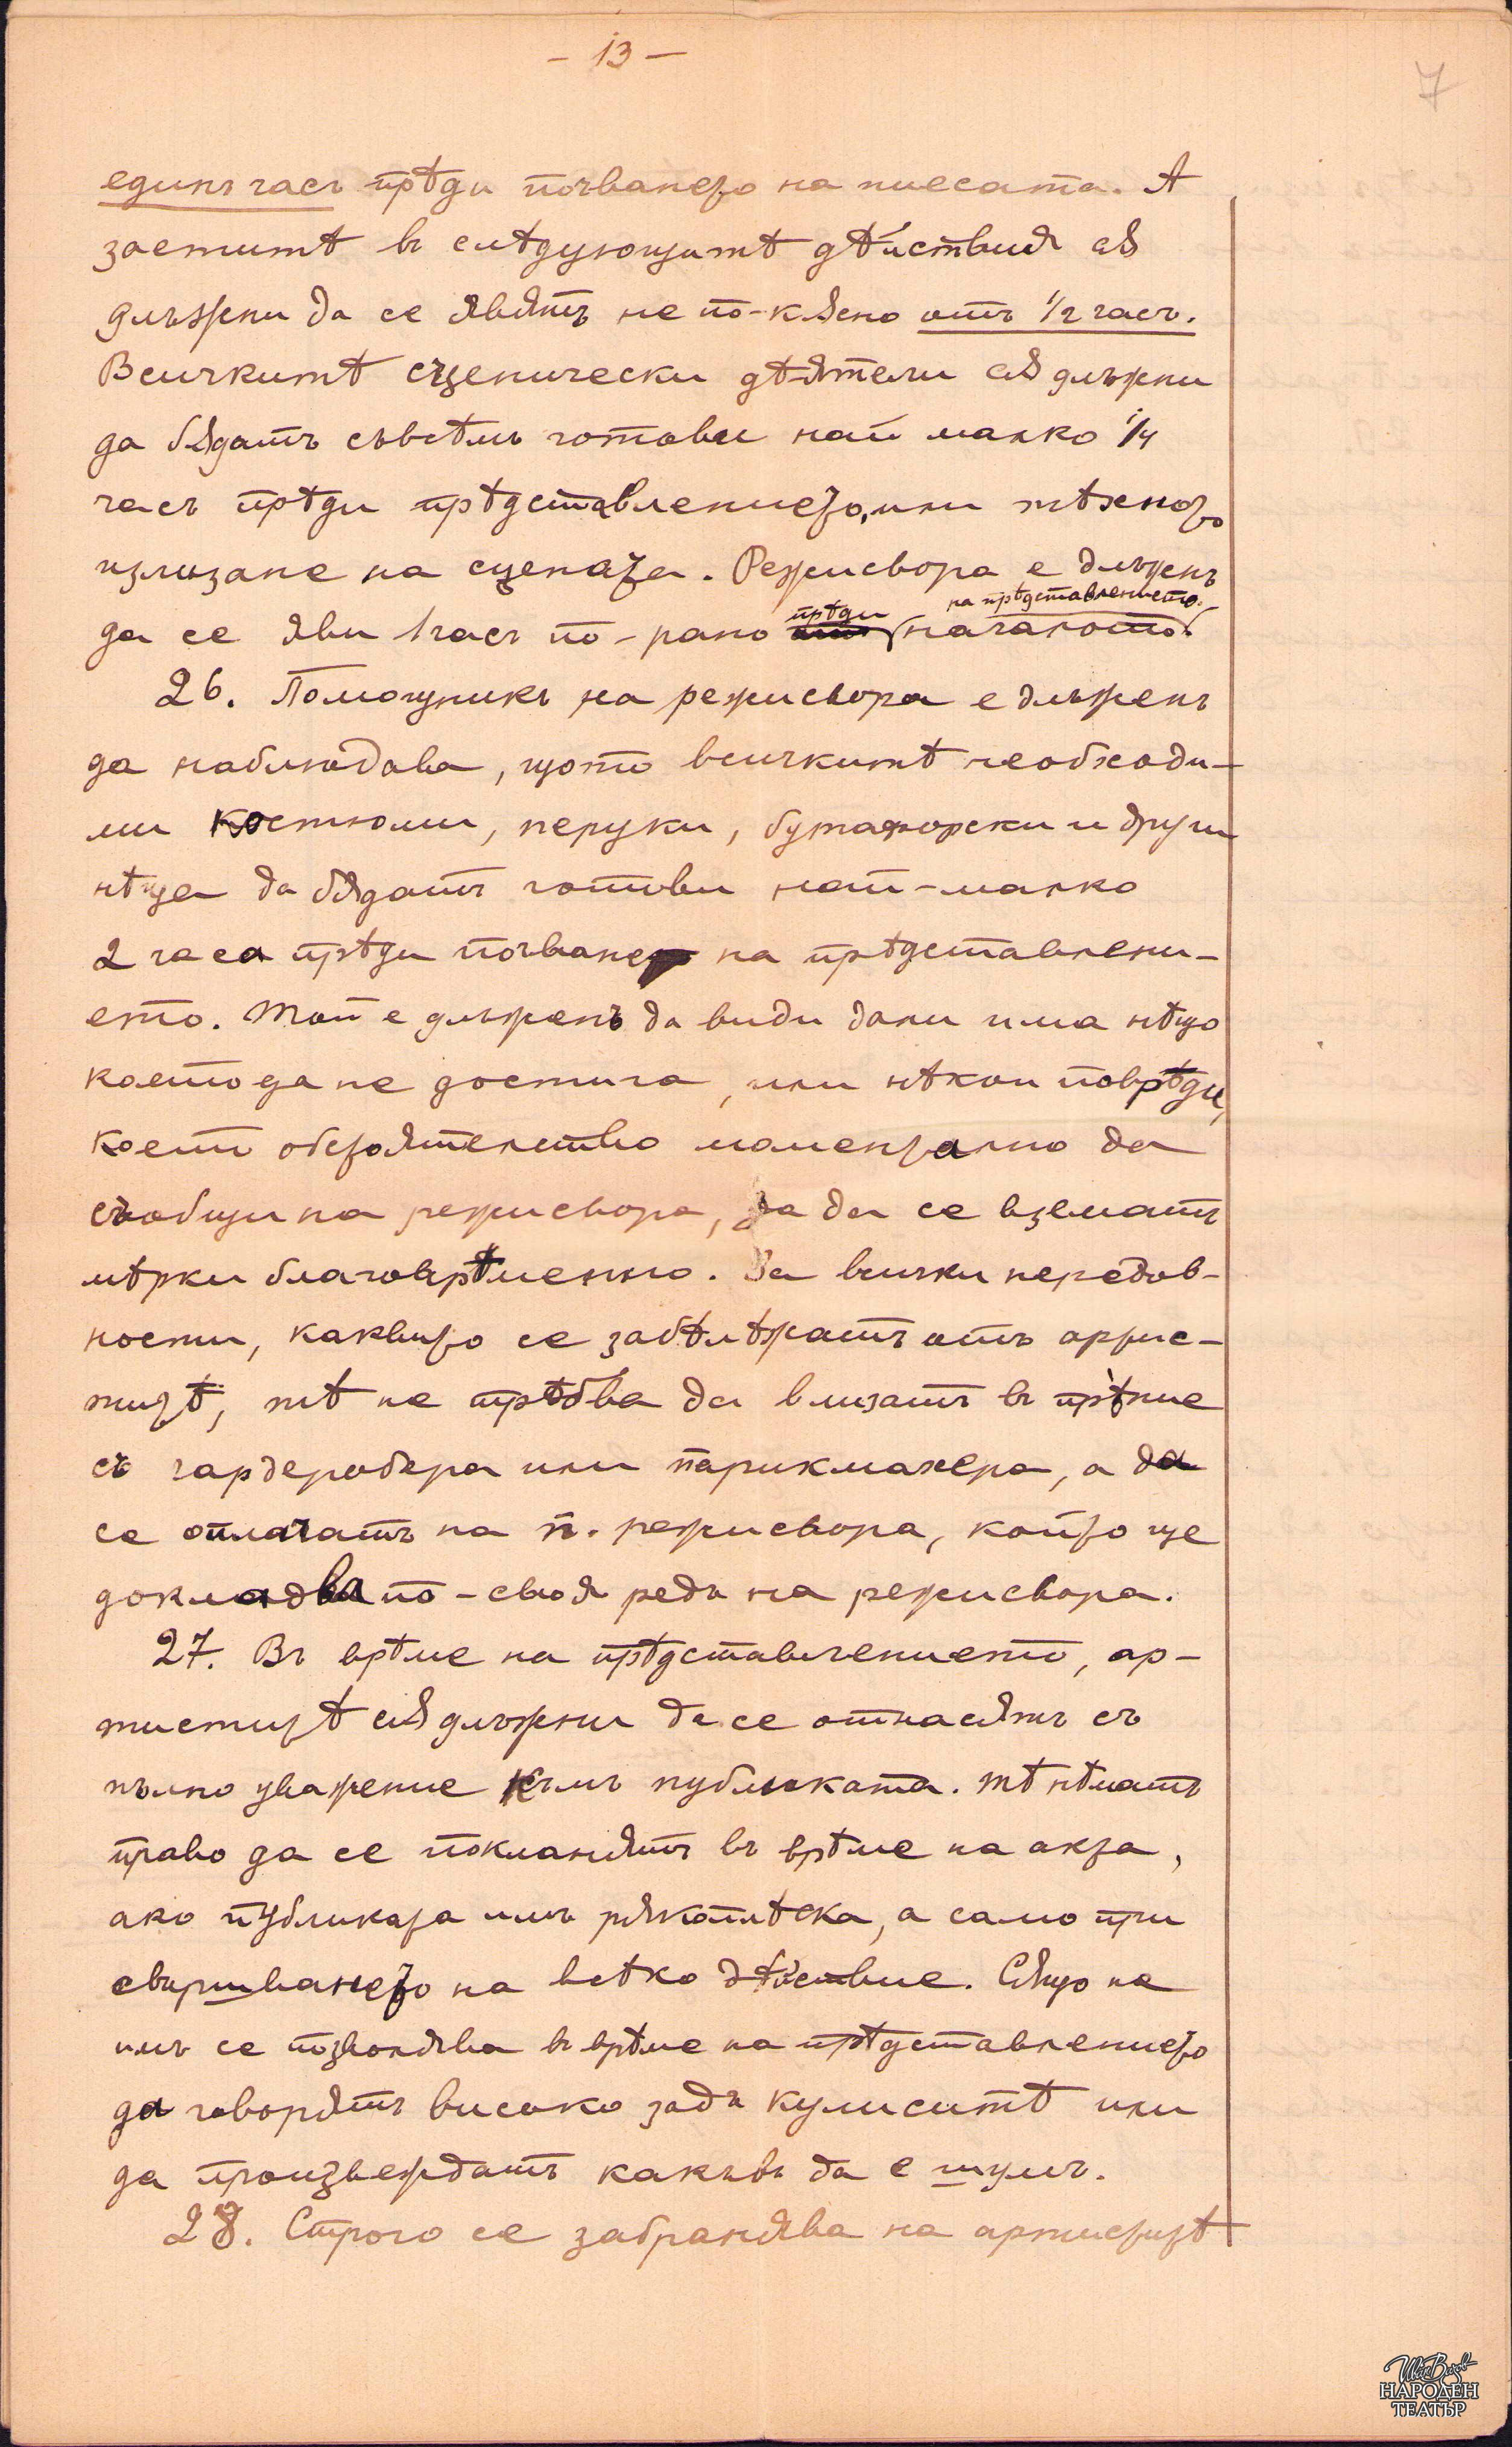 - 13 -
7
единъ часъ прѣди почването на пиесата. А
заетитѣ въ слѣдующитѣ дѣйствия сѫ
длъжни да се явятъ не по-кѫсно отъ 1/2 часъ.
Всичкитѣ сценически дѣятели сѫ длъжни
да бѫдатъ съвсѣмъ готови най малко 1/4
часъ прѣди прѣдставлението, или тѣхното
излизане на сцената. Режисьора е длъженъ
да се яви 1 часъ по-рано прѣди началото на прѣдставлението.
26. Помощникъ на режисьора е длъженъ
да наблюдава, щото всичкитѣ необходи-
ми костюми, перуки, бутафорски и други
нѣща да бѫдатъ готови най-малко
2 часа прѣди почване на прѣдставлени-
ето. Той е длъженъ да види дали има нѣщо
което да не достига, или нѣкои поврѣди,
което обезателство моментално да
съобщи на режисьора, за да се взематъ
мѣрки благоврѣменно. За всички нередов-
ности, каквито се забѣлѣжатъ отъ артис-
титѣ, тѣ не трѣбва да влизатъ въ прѣние
съ гардеробера или парикмахера, а да
се оплачатъ на п. режисьора, който ще
докладва по-своя редъ на режисьора.
27. Въ врѣме на прѣдставлението, ар-
тиститѣ сѫ длъжни да се отнасятъ съ
пълно уважение къмъ публиката. Тѣ нѣматъ
право да се покланятъ въ врѣме на акта,
ако публиката имъ рѫкоплѣска, а само при
свършването на всѣко дѣйствие. Сѫщо не
имъ се позволява въ врѣме на прѣдставлението
да говорятъ високо задъ кулиситѣ или
да произвеждатъ какъвъ да е шумъ.
28. Строго се забранява на артиститѣ
Иван Вазов
НАРОДЕН
ТЕАТЪР